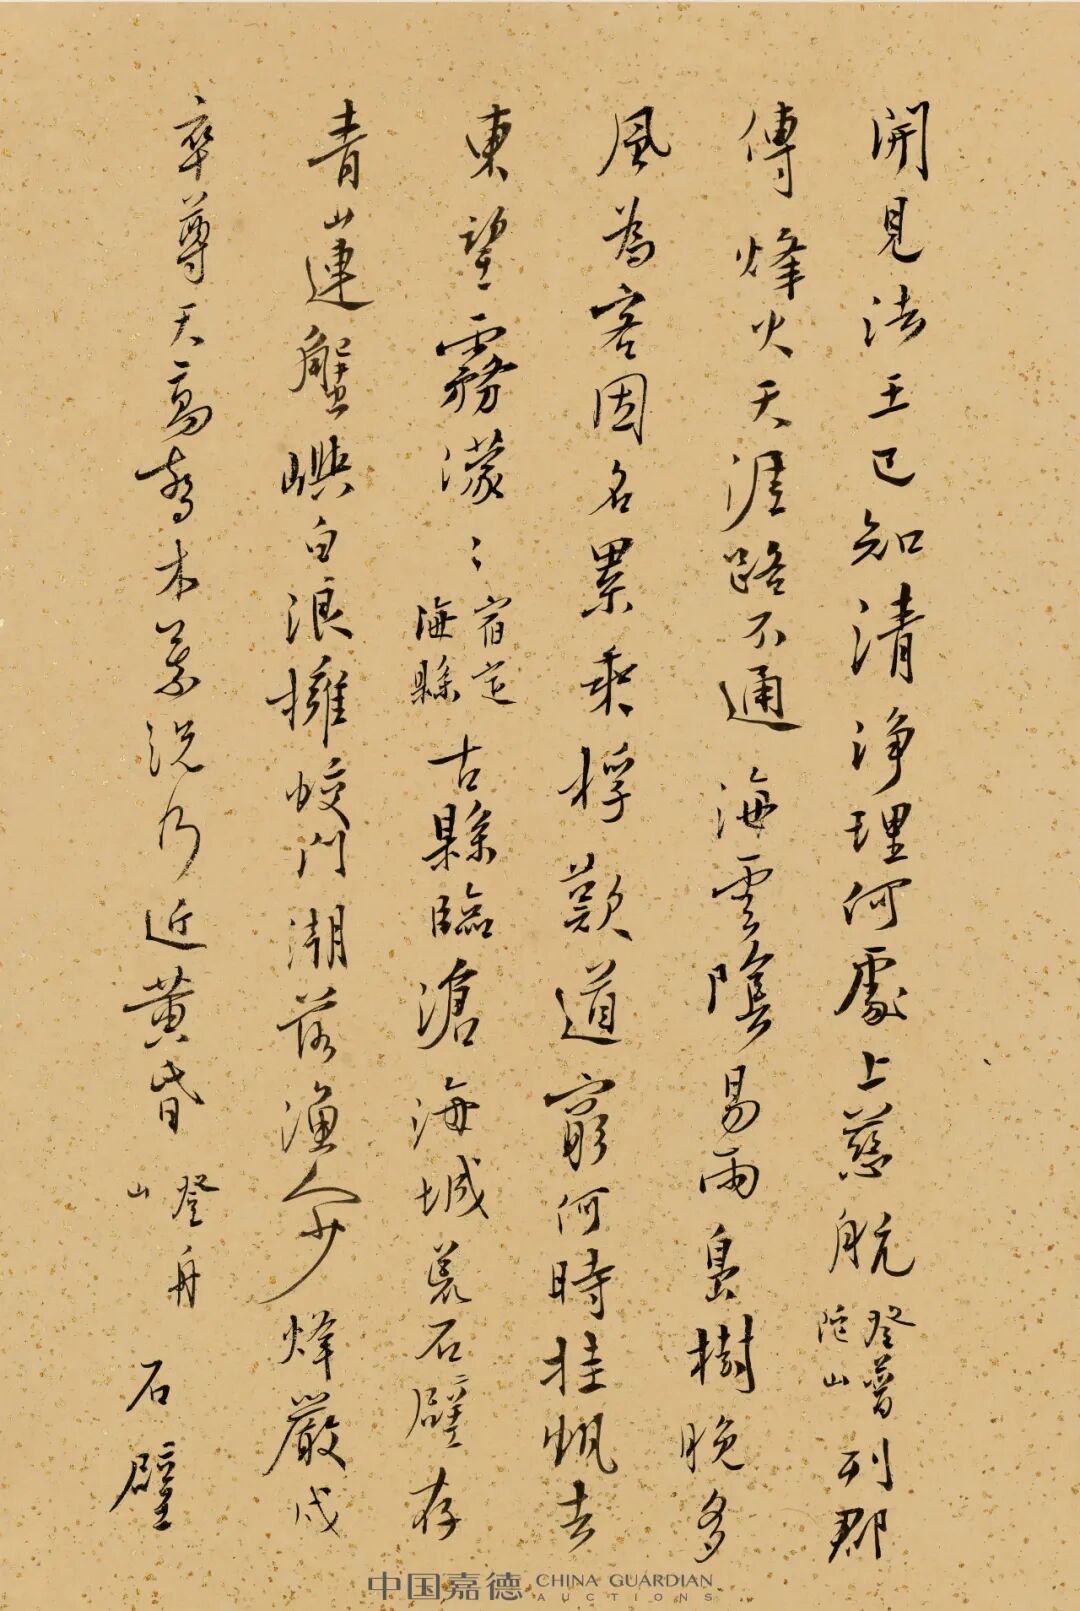 開見法王已知清淨理何處上慈航登普陀山列郡
傳烽火天涯路不通海雲陰易雨島樹晚多
風為客因名累乘桴歎道窮何時挂帆去
東望霧濛〻宿定海縣古縣臨滄海城荒石壁存
青山連蟹嶼白浪擁蛟門潮落漁人少烽嚴戍
卒尊天高喬木葉況乃近黃昏登舟山石壁
中国嘉德 CHINA GUARDIAN AUCTIONS